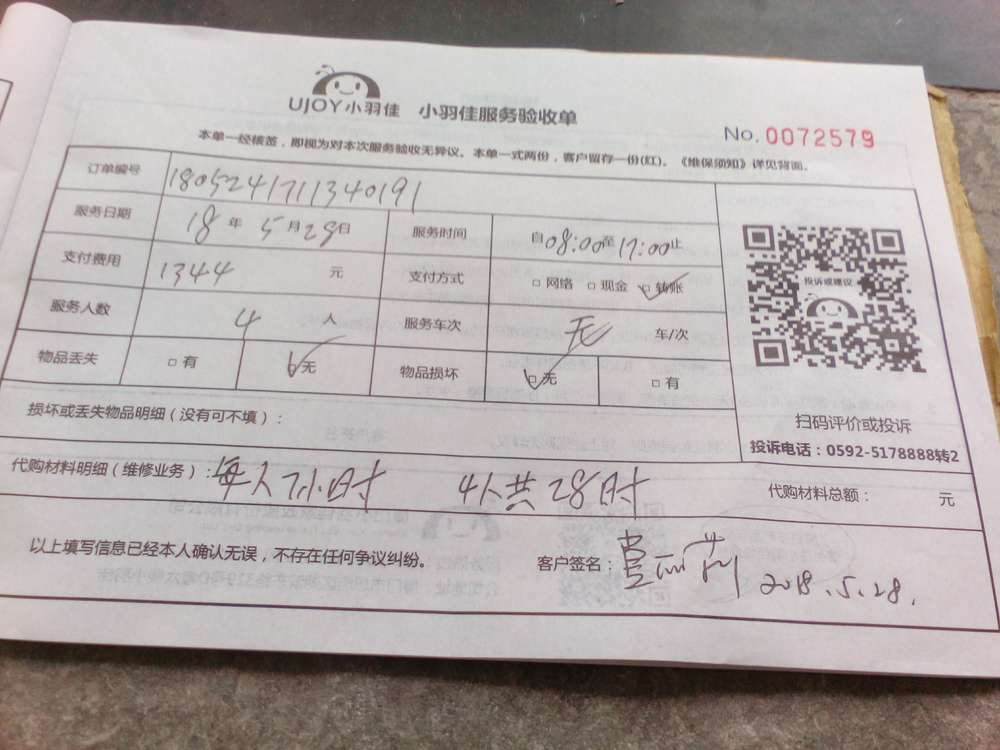 UJOY小羽佳 小羽佳服务验收单
No. 0072579
本单一经核签，即视为对本次服务验收无异议。本单一式两份，客户留存一份(红)。《维保须知》详见背面。
订单编号 1805241711340191
服务日期 18年5月29日 服务时间 自08:00至17:00止
支付费用 1344元 支付方式 □网络 □现金 □转账
服务人数 4人 服务车次 无 车/次
物品丢失 □有 □无 物品损坏 □无 □有
投诉或建议
扫码评价或投诉
投诉电话：0592-5178888转2
损坏或丢失物品明细（没有可不填）：
代购材料明细（维修业务）：每人7小时 4人共28时 代购材料总额： 元
以上填写信息已经本人确认无误，不存在任何争议纠纷。 客户签名： 2018.5.28.